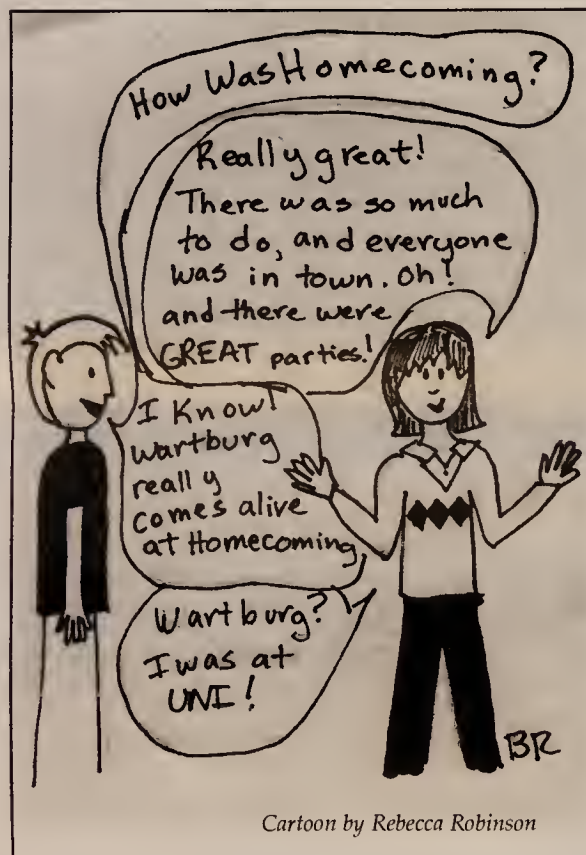 How Was Homecoming?
Really great!
There was so much
to do, and everyone
was in town. Oh!
and there were
GREAT parties!
I Know!
Wartburg
really
comes alive
at Homecoming.
Wartburg?
I was at
UNI!
BR
Cartoon by Rebecca Robinson